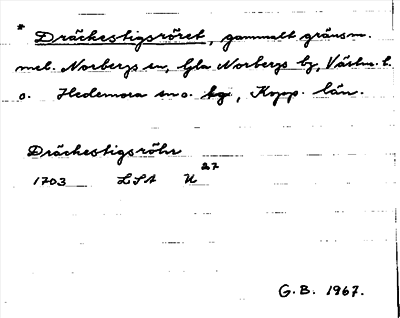 * Dräckestigsröret, gammalt gränsm.
mel. Norbergs sn, Gla Norbergs bg, Västm. l.
o. Hedemora sn o. bg, Kopp. län.
Dräckestigsröhr
1703 LSA U 27
G.B. 1967.